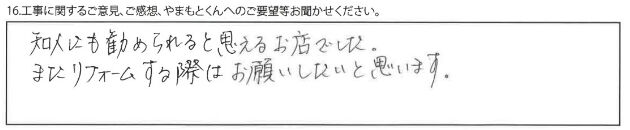 16.工事に関するご意見、ご感想、やまもとくんへのご要望等お聞かせください。
知人にも勧められると思えるお店でした。
またリフォームする際はお願いしたいと思います。